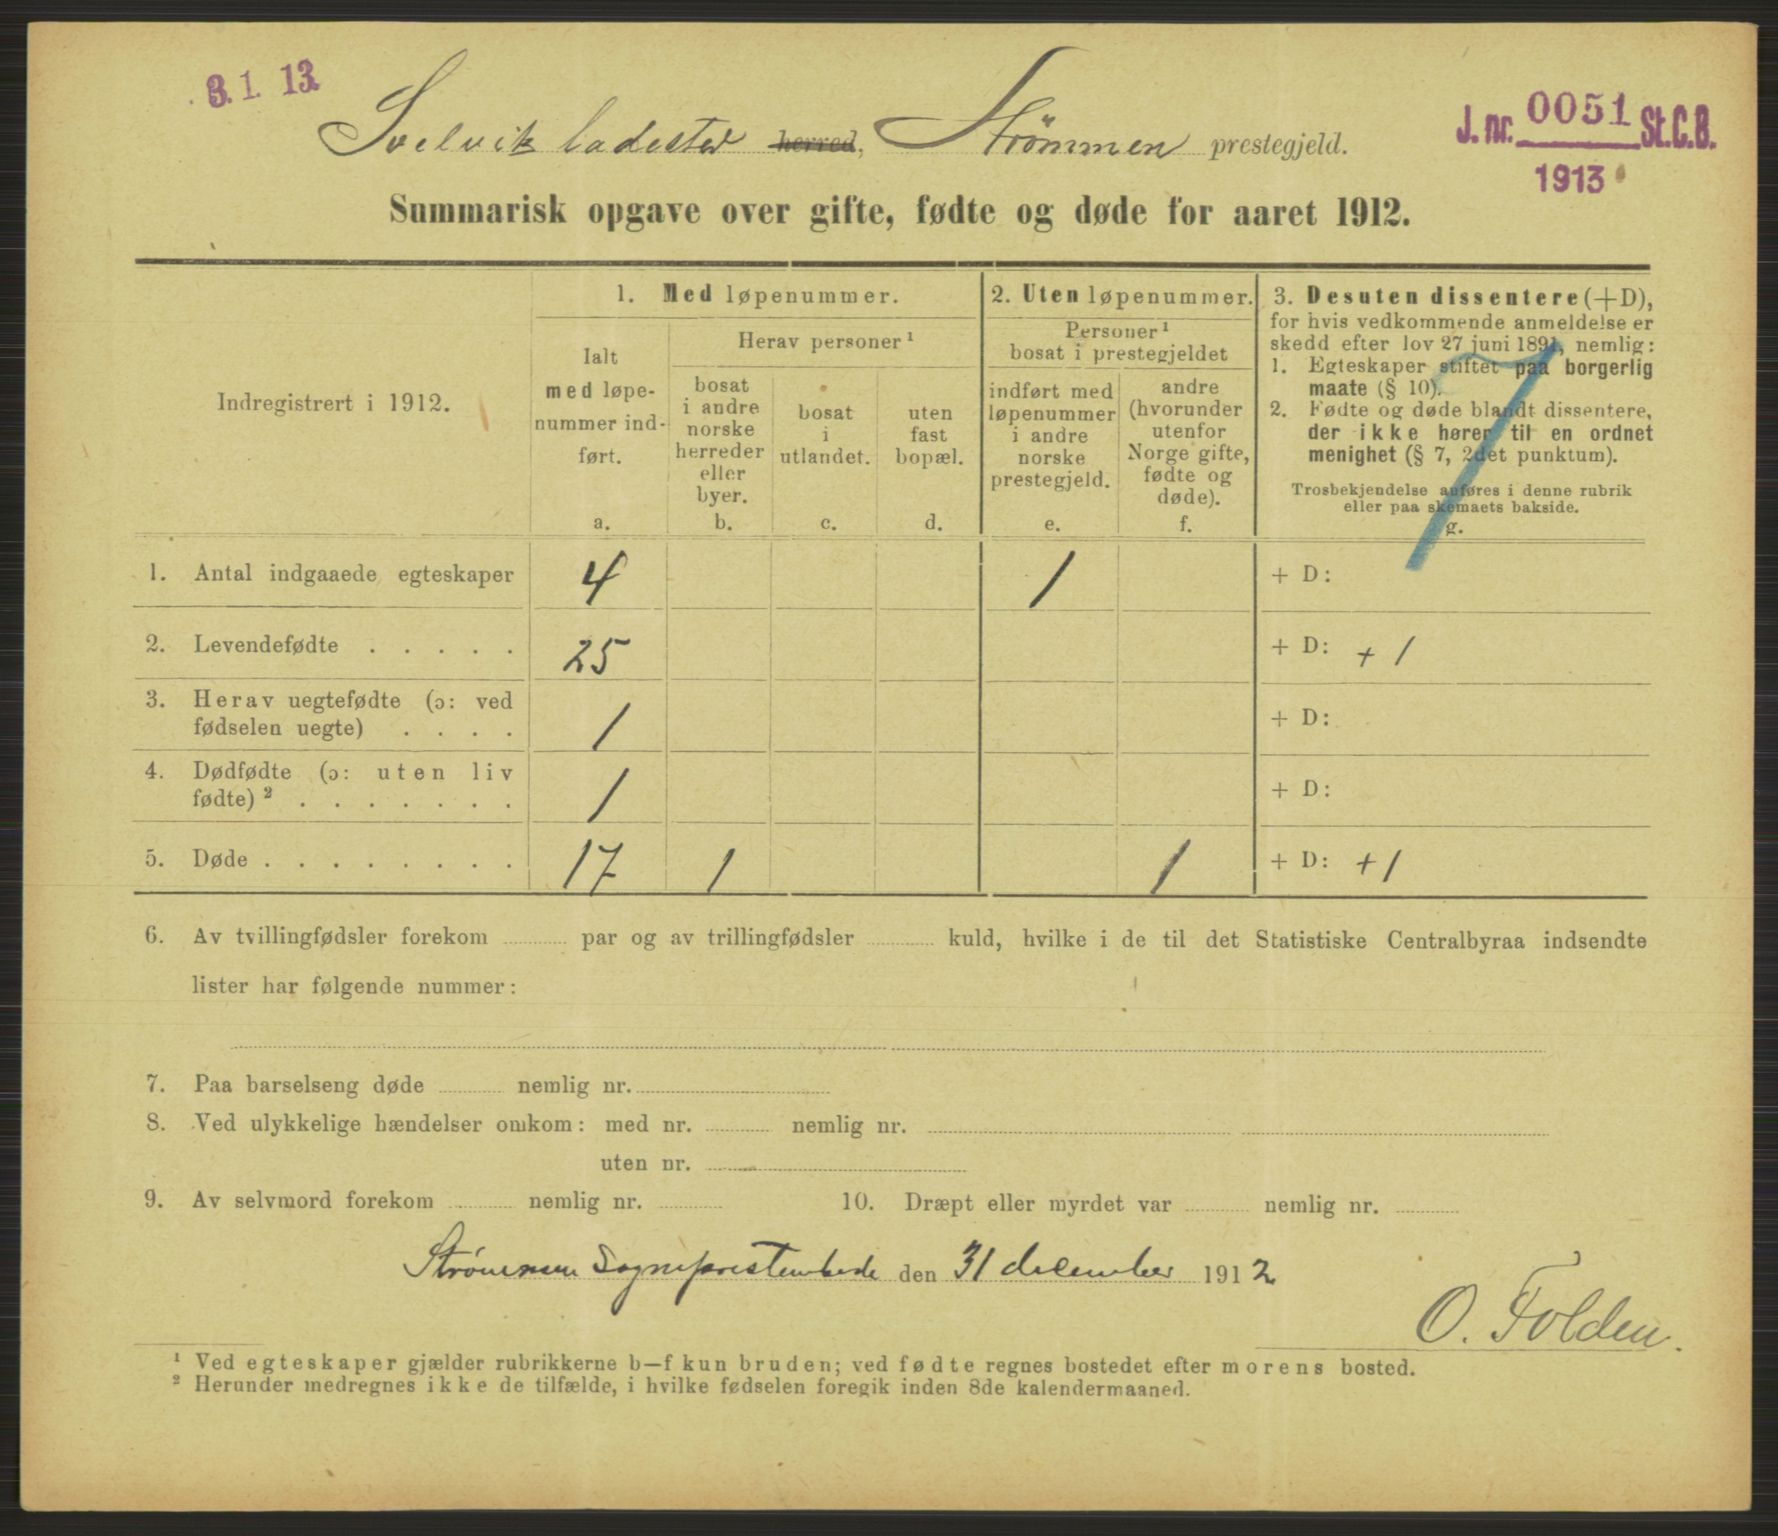 3. 1. 13.
Svelvik ladested herred, Strømmen prestegjeld.
J. nr. 0051 St. C. B.
1913
Summarisk opgave over gifte, fødte og døde for aaret 1912.
Indregistrert i 1912.
1. Med løpenummer.
Ialt
med løpe-
nummer ind-
ført.
a.
Herav personer ¹
bosat
i andre
norske
herreder
eller
byer.
b.
bosat
i
utlandet.
c.
uten
fast
bopæl.
d.
2. Uten løpenummer.
Personer ¹
bosat i prestegjeldet
indført med
løpenummer
i andre
norske
prestegjeld.
e.
andre
(hvorunder
utenfor
Norge gifte,
fødte og
døde).
f.
3. Desuten dissentere (+D),
for hvis vedkommende anmeldelse er
skedd efter lov 27 juni 1891, nemlig:
1. Egteskaper stiftet paa borgerlig
maate (§ 10).
2. Fødte og døde blandt dissentere,
der ikke hører til en ordnet
menighet (§ 7, 2det punktum).
Trosbekjendelse anføres i denne rubrik
eller paa skemaets bakside.
g.
1. Antal indgaaede egteskaper 4 1 + D:
2. Levendefødte . . . . . 25 + D: + 1
3. Herav uegtefødte (ɔ: ved
fødselen uegte) . . . . 1 + D:
4. Dødfødte (ɔ: uten liv
fødte) ² . . . . . . . 1 + D:
5. Døde . . . . . . . . 17 1 1 + D: + 1
6. Av tvillingfødsler forekom par og av trillingfødsler kuld, hvilke i de til det Statistiske Centralbyraa indsendte
lister har følgende nummer:
7. Paa barselseng døde nemlig nr.
8. Ved ulykkelige hændelser omkom: med nr. nemlig nr.
uten nr.
9. Av selvmord forekom nemlig nr. 10. Dræpt eller myrdet var nemlig nr.
Strømmen Sogneprestembede den 31 december 1912
O. Folden.
¹ Ved egteskaper gjælder rubrikkerne b—f kun bruden; ved fødte regnes bostedet efter morens bosted.
² Herunder medregnes ikke de tilfælde, i hvilke fødselen foregik inden 8de kalendermaaned.